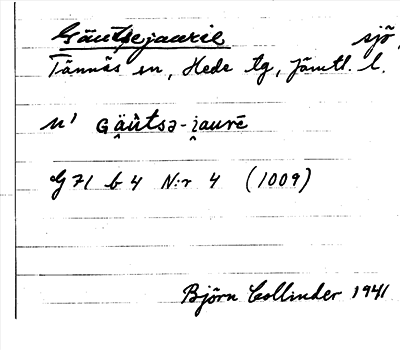 Gäutsejaurie sjö,
Tännäs sn, Hede tg, Jämtl. l.
n' Gäùtsə-i̯aurē
G 71 b 4 N:r 4 (1009)
Björn Collinder 1941